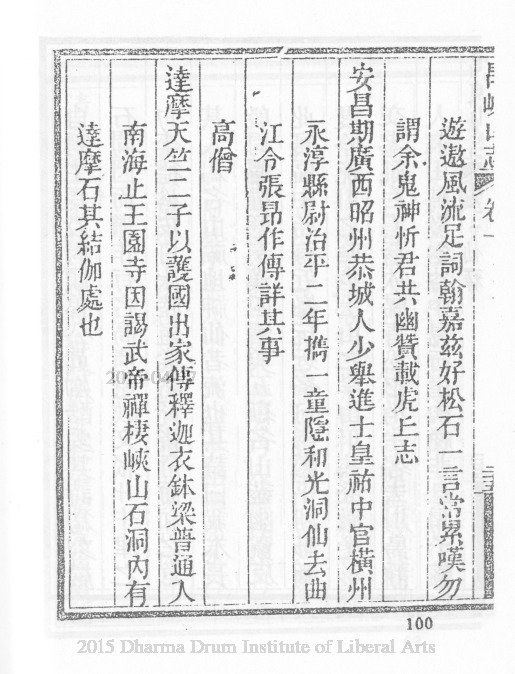 禺峽山志 卷一
遊遨風流足詞翰嘉茲好松石一言常累嘆勿
謂余鬼神忻君共幽贊載虎丘志
安昌期廣西昭州恭城人少舉進士皇祐中官橫州
永淳縣尉治平二年攜一童隱和光洞仙去曲
江令張昂作傳詳其事
高僧
達摩天竺三子以護國出家傳釋迦衣鉢梁普通入
南海止王園寺因謁武帝禪棲峽山石洞內有
達摩石其結伽處也
100
2015 Dharma Drum Institute of Liberal Arts